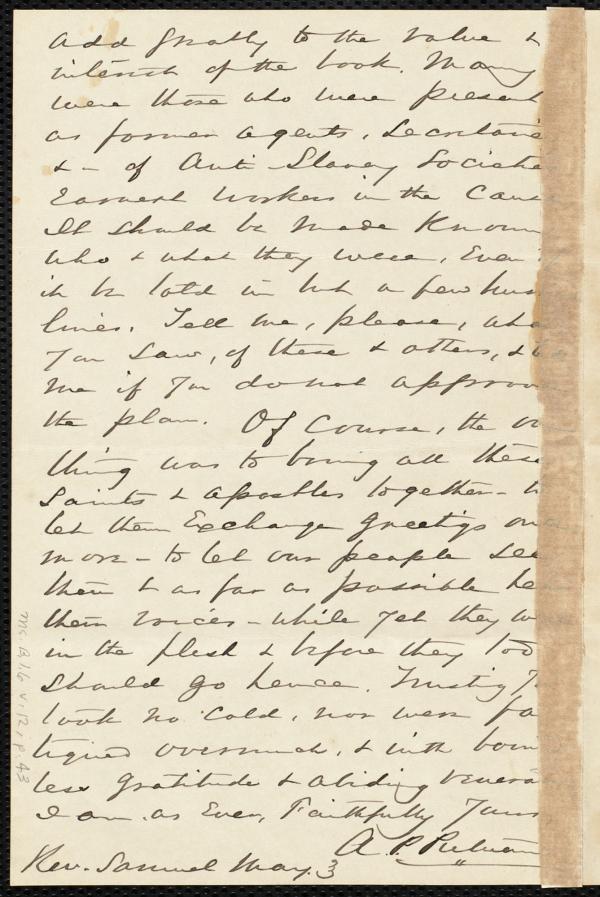 add greatly to the value &
interest of the book. Many
were those who were present
as former agents, Secretarie
& - of Anti-Slavery Societie
Earnest workers in the Caus
It should be made known
who & what they were, Even
it be told in but a few
lines. Tell me, please, wha
you saw, of these & others, &
me if you do not approve
the plan. Of Course, the
thing was to bring all these
Saints & apostles together - to
let them Exchange greetigs on
more - to let our people see
them & as far as possible he
their voices - while yet they w
in the flesh & before they too
should go hence. Trusting y
took no cold, nor were fa
tigued overmuch, & with boun
less gratitude & abiding venera
I am, as Ever, Faithfully Yours
A. P. Putnam
Rev. Samuel May.
Ms. B.1.6 v.12, p.43